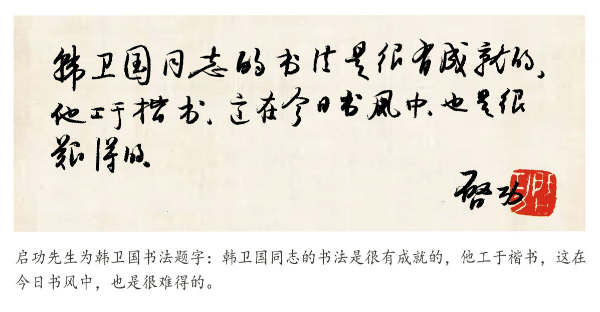 韩卫国同志的书法是很有成就的,
他工于楷书、这在今日书风中、也是很
難得的、
啓功
启功先生为韩卫国书法题字：韩卫国同志的书法是很有成就的，他工于楷书，这在
今日书风中，也是很难得的。